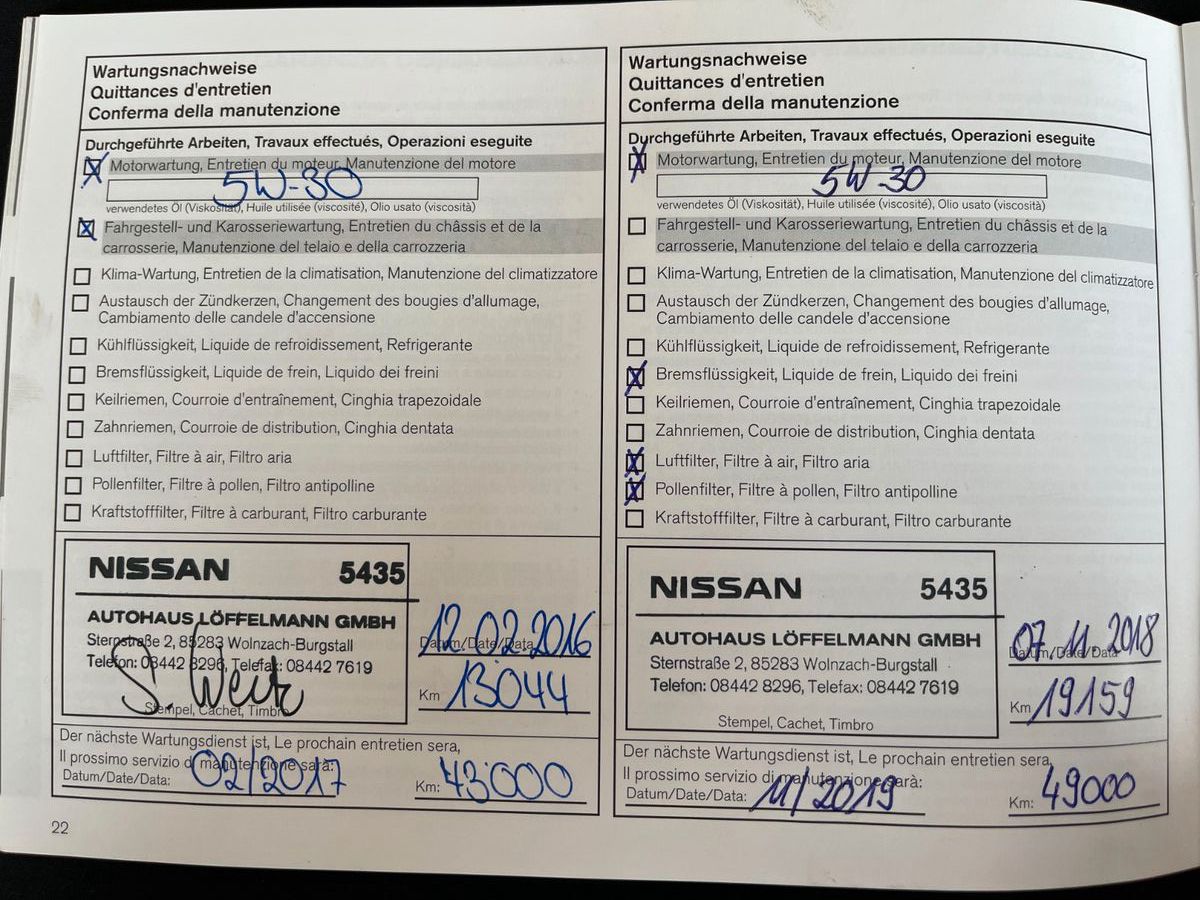 Wartungsnachweise
Quittances d'entretien
Conferma della manutenzione
Durchgeführte Arbeiten, Travaux effectués, Operazioni eseguite
Motorwartung, Entretien du moteur, Manutenzione del motore
5W-30
verwendetes Öl (Viskosität), Huile utilisée (viscosité), Olio usato (viscosità)
Fahrgestell- und Karosseriewartung, Entretien du châssis et de la
carrosserie, Manutenzione del telaio e della carrozzeria
Klima-Wartung, Entretien de la climatisation, Manutenzione del climatizzatore
Austausch der Zündkerzen, Changement des bougies d'allumage,
Cambiamento delle candele d'accensione
Kühlflüssigkeit, Liquide de refroidissement, Refrigerante
Bremsflüssigkeit, Liquide de frein, Liquido dei freini
Keilriemen, Courroie d'entraînement, Cinghia trapezoidale
Zahnriemen, Courroie de distribution, Cinghia dentata
Luftfilter, Filtre à air, Filtro aria
Pollenfilter, Filtre à pollen, Filtro antipolline
Kraftstofffilter, Filtre à carburant, Filtro carburante
NISSAN 5435
AUTOHAUS LÖFFELMANN GMBH
Sternstraße 2, 85283 Wolnzach-Burgstall
Telefon: 08442 8296, Telefax: 08442 7619
Stempel, Cachet, Timbro
12.02.2016
Datum/Date/Data
Km 13044
Der nächste Wartungsdienst ist, Le prochain entretien sera,
Il prossimo servizio di manutenzione sarà:
Datum/Date/Data: 02/2017 Km: 43000
22
Wartungsnachweise
Quittances d'entretien
Conferma della manutenzione
Durchgeführte Arbeiten, Travaux effectués, Operazioni eseguite
Motorwartung, Entretien du moteur, Manutenzione del motore
5W-30
verwendetes Öl (Viskosität), Huile utilisée (viscosité), Olio usato (viscosità)
Fahrgestell- und Karosseriewartung, Entretien du châssis et de la
carrosserie, Manutenzione del telaio e della carrozzeria
Klima-Wartung, Entretien de la climatisation, Manutenzione del climatizzatore
Austausch der Zündkerzen, Changement des bougies d'allumage,
Cambiamento delle candele d'accensione
Kühlflüssigkeit, Liquide de refroidissement, Refrigerante
Bremsflüssigkeit, Liquide de frein, Liquido dei freini
Keilriemen, Courroie d'entraînement, Cinghia trapezoidale
Zahnriemen, Courroie de distribution, Cinghia dentata
Luftfilter, Filtre à air, Filtro aria
Pollenfilter, Filtre à pollen, Filtro antipolline
Kraftstofffilter, Filtre à carburant, Filtro carburante
NISSAN 5435
AUTOHAUS LÖFFELMANN GMBH
Sternstraße 2, 85283 Wolnzach-Burgstall
Telefon: 08442 8296, Telefax: 08442 7619
Stempel, Cachet, Timbro
07.11.2018
Datum/Date/Data
Km 19159
Der nächste Wartungsdienst ist, Le prochain entretien sera,
Il prossimo servizio di manutenzione sarà:
Datum/Date/Data: 11/2019 Km: 49000